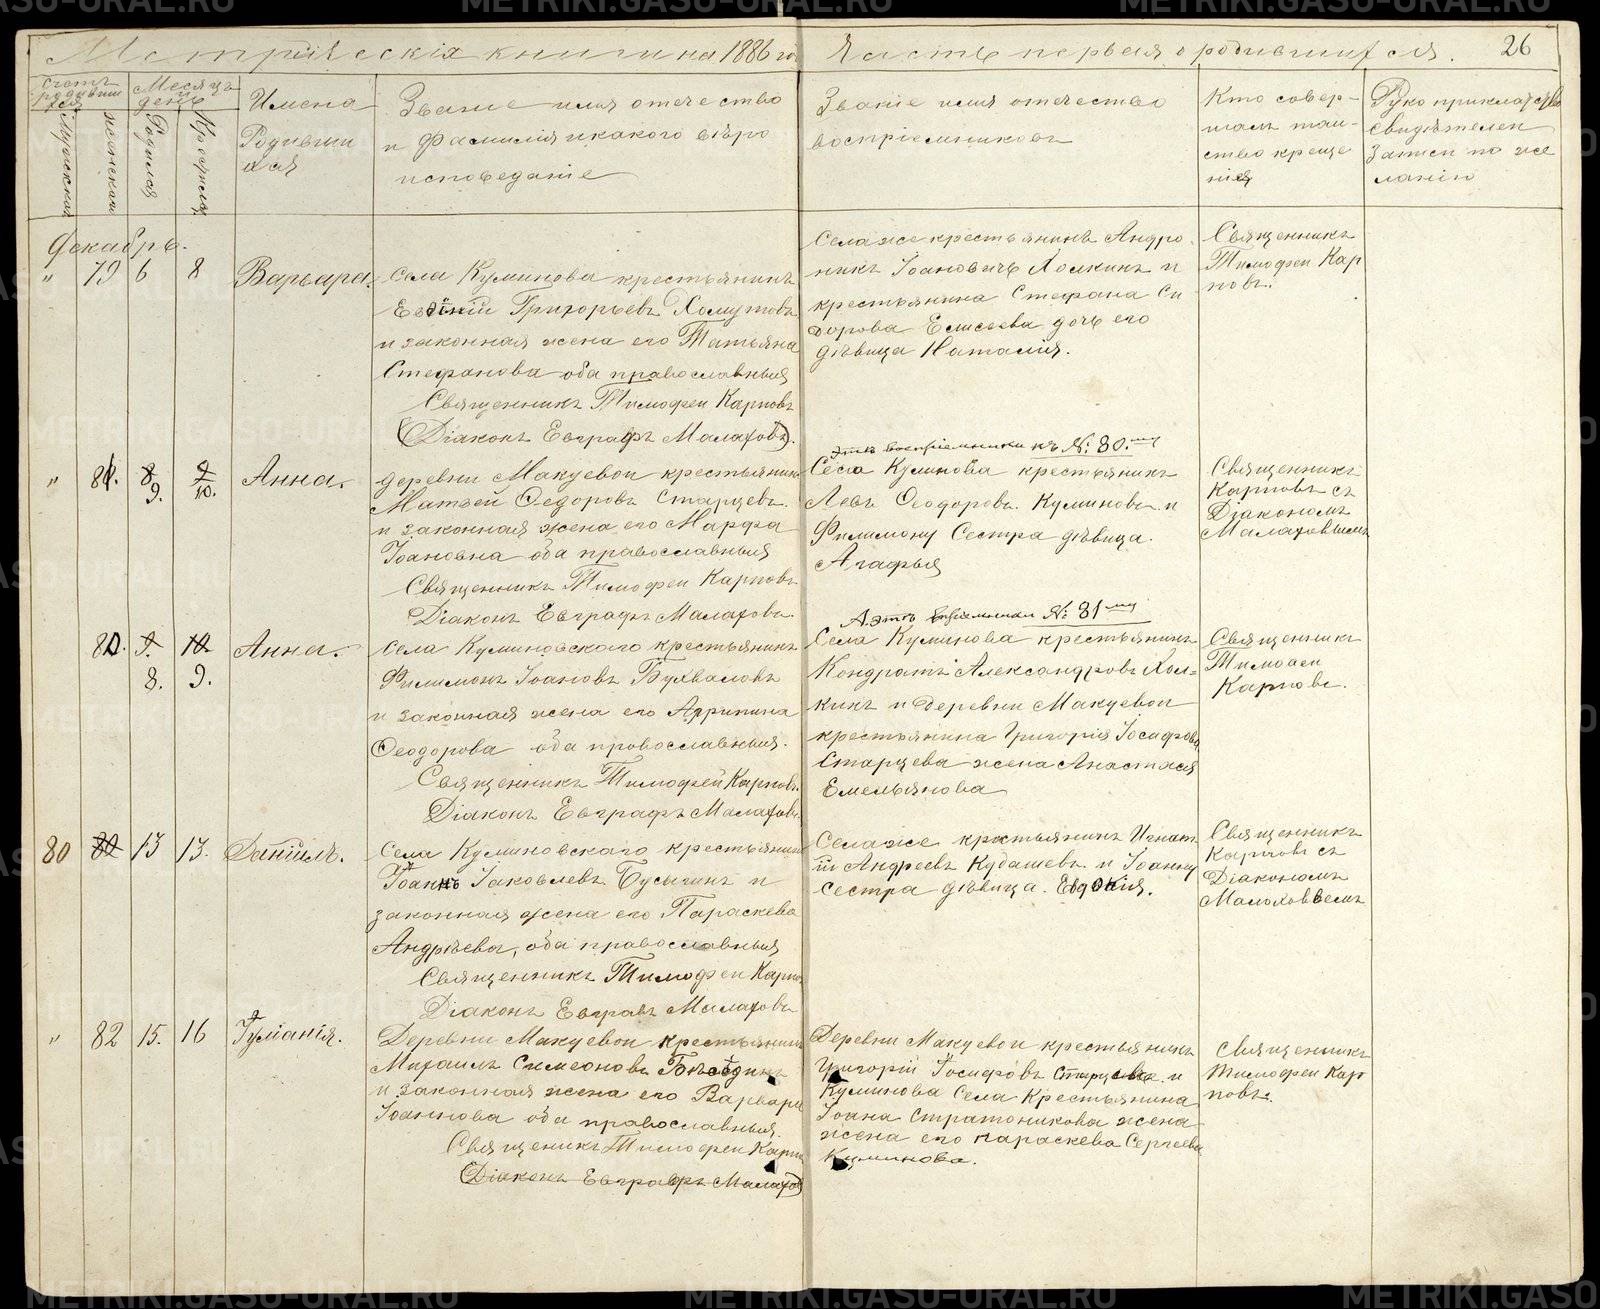 Метрическiя книги на 1886 го
Часть первая о родившихся.
26
Счетъ
родивши
хся
Мужскии
женскии
Месяцъ
день
Родился
Крестился
Имена
Родивши
хся
Званiе имя отечество
и Фамилiя и какого вѣро
исповеданiе
Званiе имя отечество
воспрiемниковъ
Кто совер-
шалъ таи-
ство креще
нiя
Руко прикладство
свидѣтелеи
записи по же
ланiю
Декабрь.
" 79 6 8 Варвара.
Села Куминова крестьянинъ
Григорьевъ Хомутовъ
и законная жена его Татьяна
Стефанова оба православныя
Священникъ Тимофеи Карповъ
Дiаконъ Евграфъ Малаховъ.
Села же крестьянинъ Андро
никъ Iоановичъ Холкинъ и
крестьянина Стефана Си
дорова Елисеева дочь его
дѣвица Наталiя.
Священникъ
Тимофеи Кар
повъ.
" 81. 8 9. 9 10. Анна.
деревни Макуевои крестьянинъ
Матѳей Ѳедоровъ Старцевъ
и законная жена его Марфа
Iоановна оба православныя
Священникъ Тимофеи Карповъ
Дiаконъ Евграфъ Малаховъ
Эти воспрiемники къ №: 80.му
Села Куминова крестьянинъ
Левъ Ѳеодоровъ Куминовъ и
Филимону Сестра дѣвица.
Агафья
Священникъ
Карповъ съ
Дiакономъ
Малаховымъ
80. 9. 8. 10 9. Анна.
села Куминовского крестьянинъ
Филимонъ Iоановъ Бухваловъ
и законная жена его Агрипина
Ѳеодорова оба провославныя.
Священникъ Тимофей Карповъ.
Дiаконъ Евграфъ Малаховъ
А эти воспрiемники №: 81му
Села Куминова крестьянинъ
Кондратъ Александровъ Хол=
кинъ и деревни Макуевои
крестьянина Григорiя Iосифова
Старцева жена Анастасiя
Емельянова
Священникъ
Тимофеи
Карповъ.
80 80 13 13. Данiилъ.
Села Куминовского крестьянинъ
Iоаннъ Iаковлевъ Бусыгинъ и
законная жена его Параскева
Андрѣева, оба православныя
Священникъ Тимофеи Карпо
Дiаконъ Евграфъ Малаховъ
Села же крестьянинъ Игнат
iй Андреевъ Кудашевъ и Iоанну
сестра дѣвица. Евдокiя.
Священникъ
Карповъ съ
Дiакономъ
Малоховвемъ
" 82 15. 16 Iулiанiя.
Деревни Макуевои крестьянинъ
Михаилъ Симеоновъ
и законная жена его Варвара
Iоаннова оба православныя.
Священикъ Тимофеи Карпо
Дiаконъ Евграфъ Малахов
Деревни Макуевои крестьянинъ
Григорiй Iосифовъ Старцевъ и
Куминова Села Крестьянина
Iоана Стратоникова жена
жена его параскева Сергеева
Куминова.
Священникъ
Тимофеи Кар
повъ.
METRIKI.GASU-URAL.RU